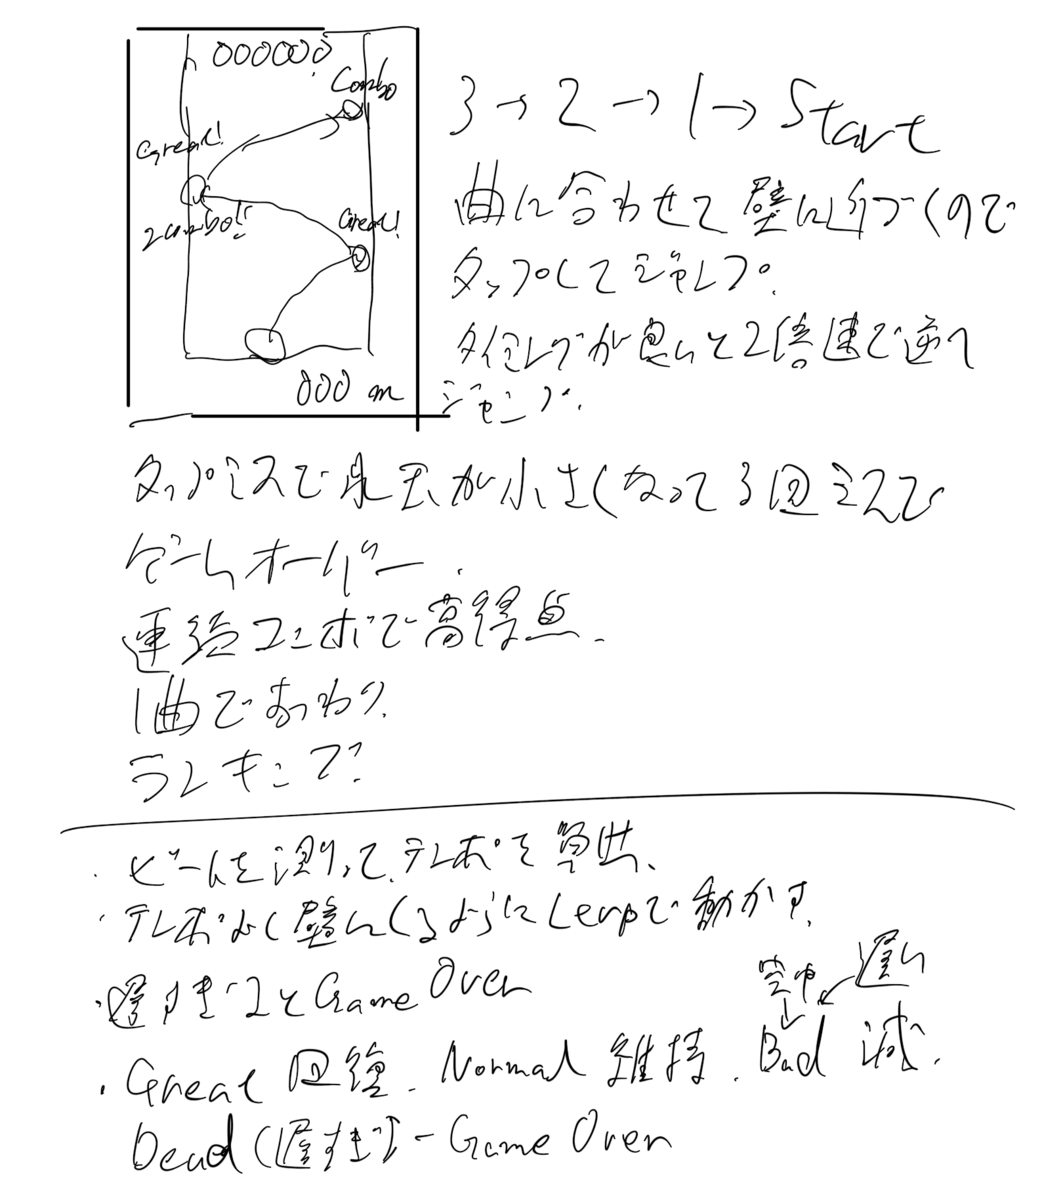 000000
Combo
Great!
2combo!!
Great!
000 m
3→2→1→Start
曲に合わせて壁に近づくので
タップしてジャンプ.
タイミングが良いと2倍速で逆へ
ジャンプ.
タップミスで点玉が小さくなって3回ミスで
ゲームオーバー.
連続コンボで高得点.
1曲でおわり.
ランキング?
・ビームを測って、テンポを算出.
・テンポよく壁にくるようにLerpで動かす.
・遅すぎるとGame Over
空中 遅い
・Great 回復. Normal 維持. Bad 減.
Dead (遅すぎ) - Game Over